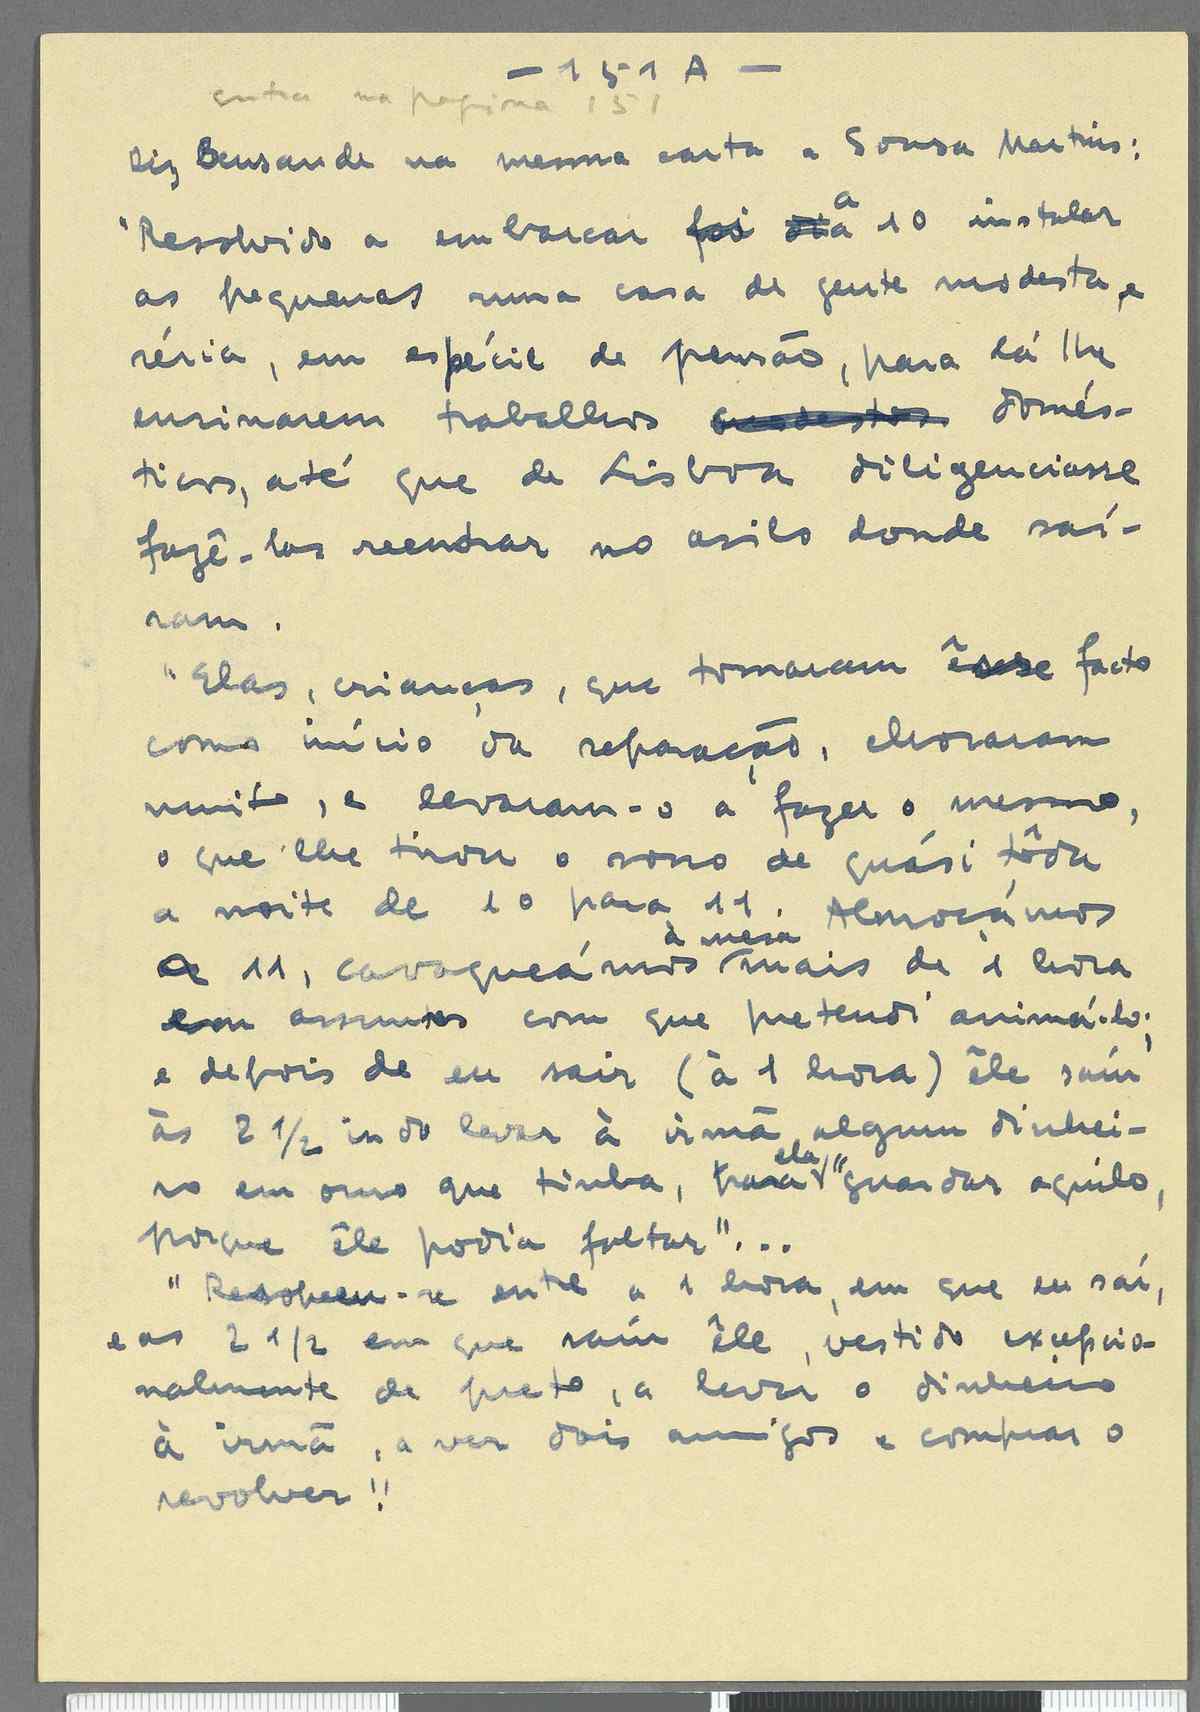 — 151 A —
entra na pagina 151
diz Bensaude na mesma carta a Sousa Martins:
"Resolvido a embarcar foi dia a 10 instalar
as pequenas numa casa de gente modesta, e
séria, em espécie de pensão, para lá lhe
ensinarem trabalhos modestos domés-
ticos, até que de Lisboa diligenciasse
fazê-las reentrar no asilo donde saí-
ram.
"Elas, crianças, que tomaram êsse facto
como início da reparação, choraram
muito, e levaram-o a fazer o mesmo,
o que lhe tirou o sono de quási tôda
a noite de 10 para 11. Almoçámos
a 11, cavaqueámos à mesa mais de 1 hora
em assuntos com que pretendi animá-lo;
e depois de eu sair (à 1 hora) êle saíu
às 2 1/2 indo levar à irmã algum dinhei-
ro em ouro que tinha, para ela "guardar aquilo,
porque êle podia faltar"...
"Resolveu-se entre a 1 hora, em que eu saí,
e as 2 1/2 em que saíu êle, vestido excepcio-
nalmente de preto, a levar o dinheiro
à irmã, a ver dois amigos e comprar o
revolver!!